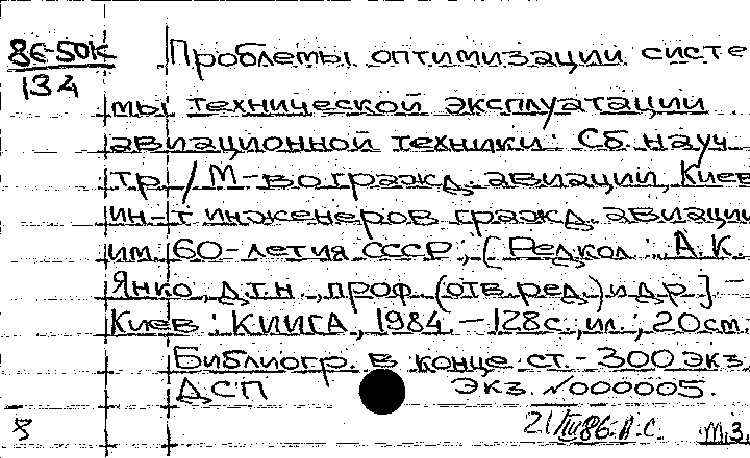 86-50К
134
Проблемы оптимизации систе
мы технической эксплуатации
авиационной техники: Сб. науч.
тр. / М-во гражд. авиации, Киев.
ин-т инженеров гражд. авиации
им. 60-летия СССР; [Редкол.: А.К.
Янко, д.т.н., проф. (отв. ред.) и др.] -
Киев: КИИГА, 1984. - 128с., ил.; 20см.
Библиогр. в конце ст. - 300 экз.
ДСП Экз. №000005.
21/III 86-А-С. М.З.